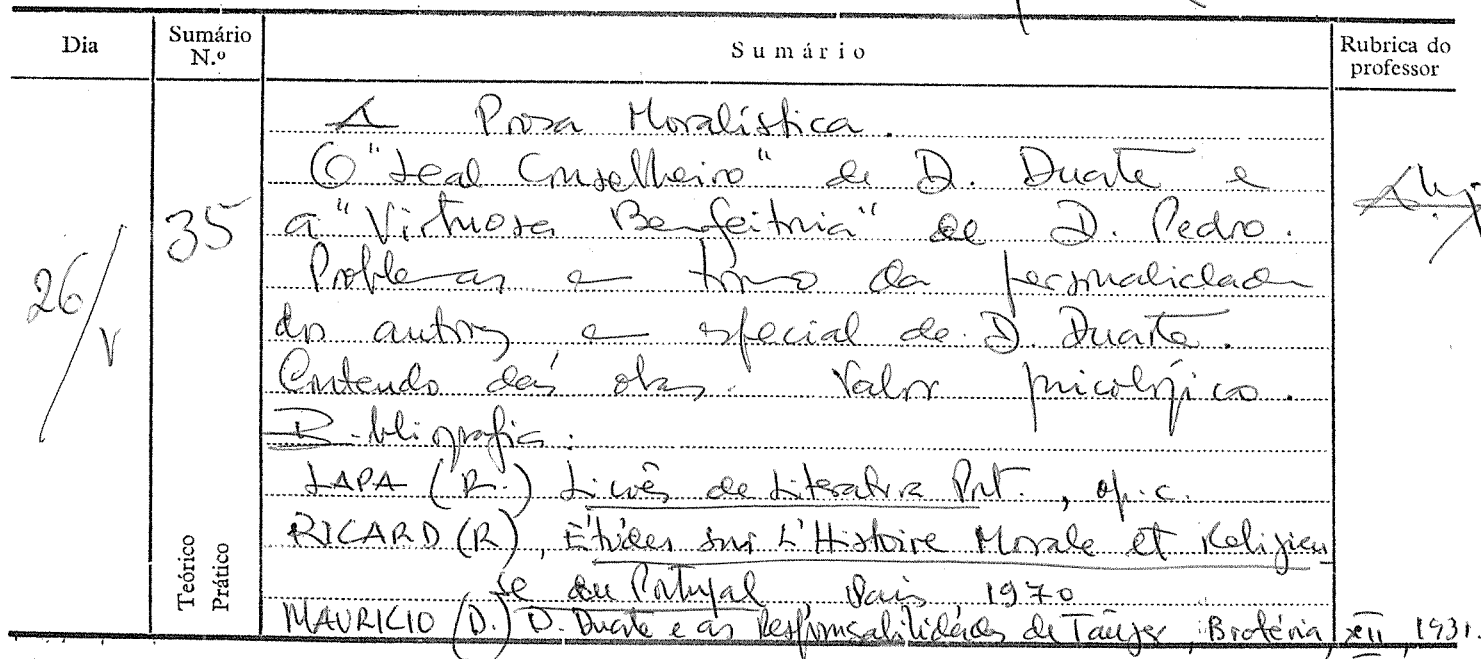 Dia Sumário N.º Sumário Rubrica do professor
A Prosa Moralística.
O "Leal Conselheiro" de D. Duarte e
a "Virtuosa Benfeitoria" de D. Pedro.
Problemas em torno da personalidade
dos autores, em especial de D. Duarte.
Conteúdo das obras. Valor psicológico.
Bibliografia:
LAPA (R.) Lições de Literatura Port., op. c.
RICARD (R), Études sur L'Histoire Morale et Religieu-
se du Portugal, Paris 1970
MAURICIO (D.) D. Duarte e as Responsabilidades de Tânger, Brotéria, XII, 1931.
26/V
35
Teórico
Prático